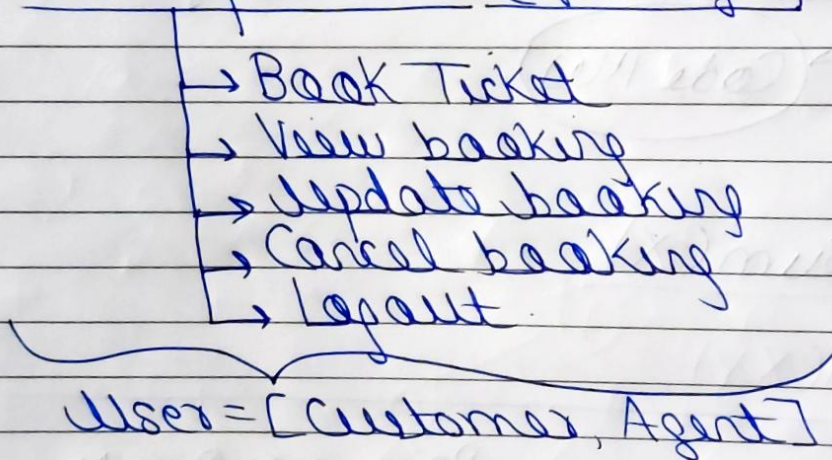 → Book Ticket
→ View booking
→ Update booking
→ Cancel booking
→ Logout
User = [Customer, Agent]